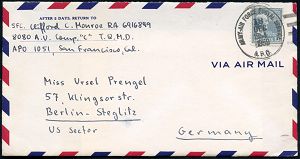 AFTER 5 DAYS, RETURN TO
Clifford C. Monroe RA 6916889
8080 A.U. Comp. "C" T.Q.M.D.
APO 1051, San Francisco, Cal.
A.P.O.
VIA AIR MAIL
Miss Ursel Prengel
57, Klingsorstr.
Berlin-Steglitz
US Sector
Germany